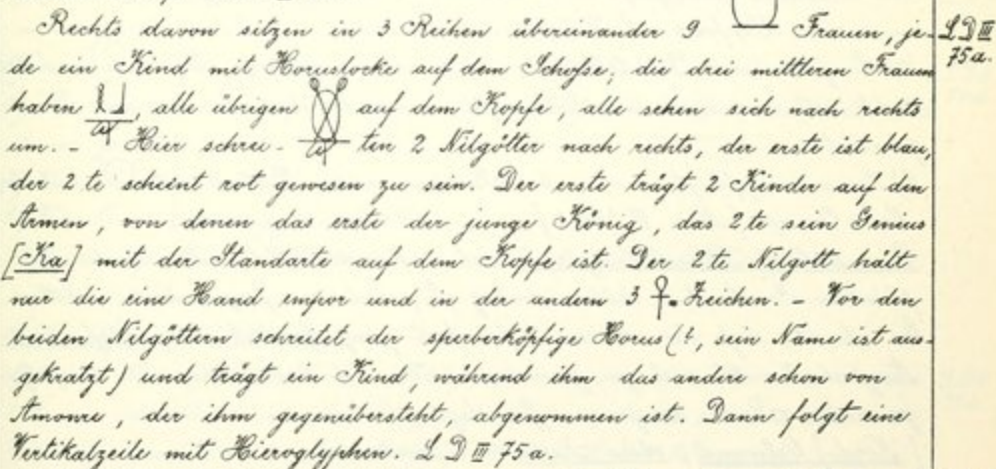 Rechts davon sitzen in 3 Reihen übereinander 9 Frauen, je-
de ein Kind mit Horuslocke auf dem Schoße; die drei mittleren Frauen
haben , alle übrigen auf dem Kopfe, alle sehen sich nach rechts
um. - Hier schrei- ten 2 Nilgötter nach rechts, der erste ist blau,
der 2te scheint rot gewesen zu sein. Der erste trägt 2 Kinder auf den
Armen, von denen das erste der junge König, das 2te sein Genius
[Ka] mit der Standarte auf dem Kopfe ist. Der 2te Nilgott hält
nur die eine Hand empor und in der andern 3 ☥-Zeichen. - Vor den
beiden Nilgöttern schreitet der sperberköpfige Horus (?, sein Name ist aus-
gekratzt) und trägt ein Kind, während ihm das andere schon von
Amonre, der ihm gegenübersteht, abgenommen ist. Dann folgt eine
Vertikalzeile mit Hieroglyphen. L D III 75a.
L D III
75a.